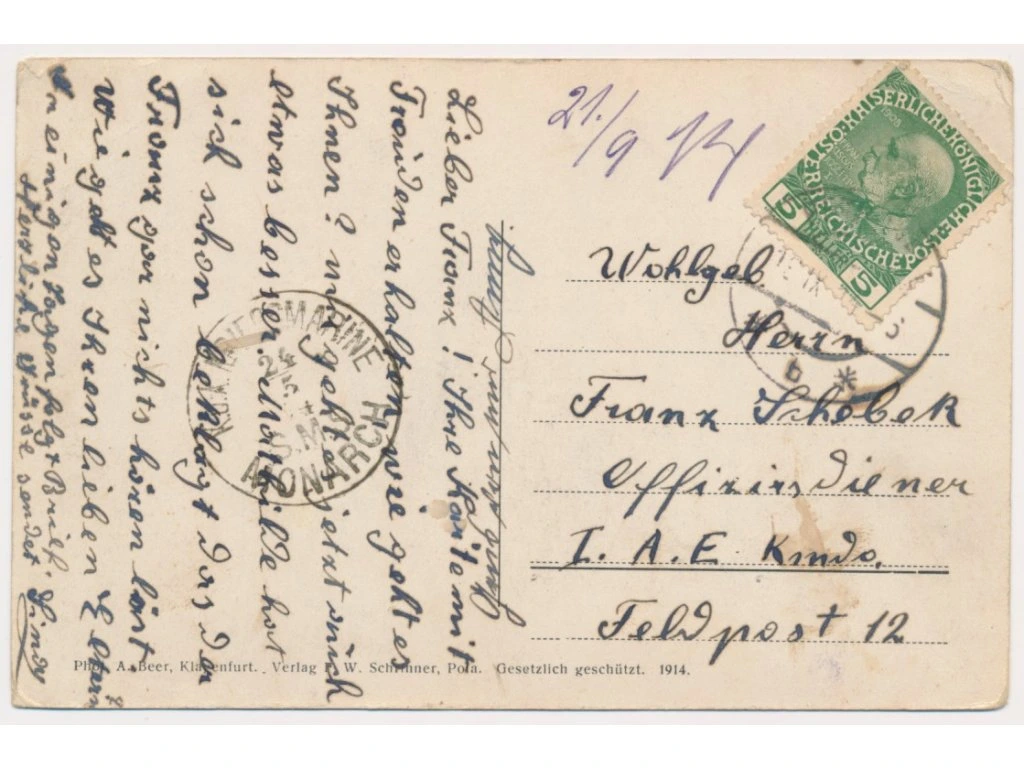 Lieber Franz! Ihre Karte mit
Freuden erhalten, wie geht es
Ihnen? mir geht es jetzt auch
etwas besser. Mathilde hat
sich schon beklagt das der
Franz gar nichts hören läst
wie geht es Ihren lieben Eltern?
In einigen Tagen folgt Brief.
Herzliche Grüsse sendet
21./9
K.u.K. KRIEGSMARINE
S.M.S.
MONARCH
KAISERLICHE KÖNIGLICHE ÖSTERREICHISCHE POST
1908
5 5
IX
b *
Wohlgeb.
Herrn
Franz Schobek
Offiziersdiener
I. A. E. Kmdo.
Feldpost 12
Phot. A. Beer, Klagenfurt. Verlag F. W. Schrinner, Pola. Gesetzlich geschützt. 1914.